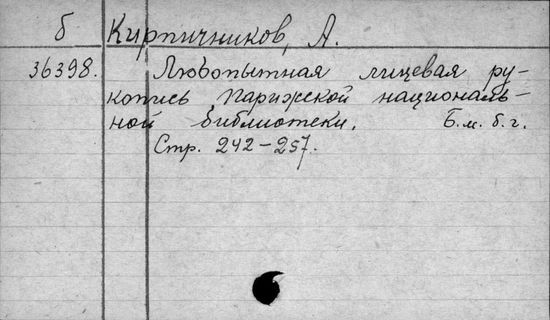 б Кирпичников, А.
36398. Любопытная лицевая ру-
копись Парижской националь-
ной библиотеки. Б.м. б.г.
Стр. 242-257.